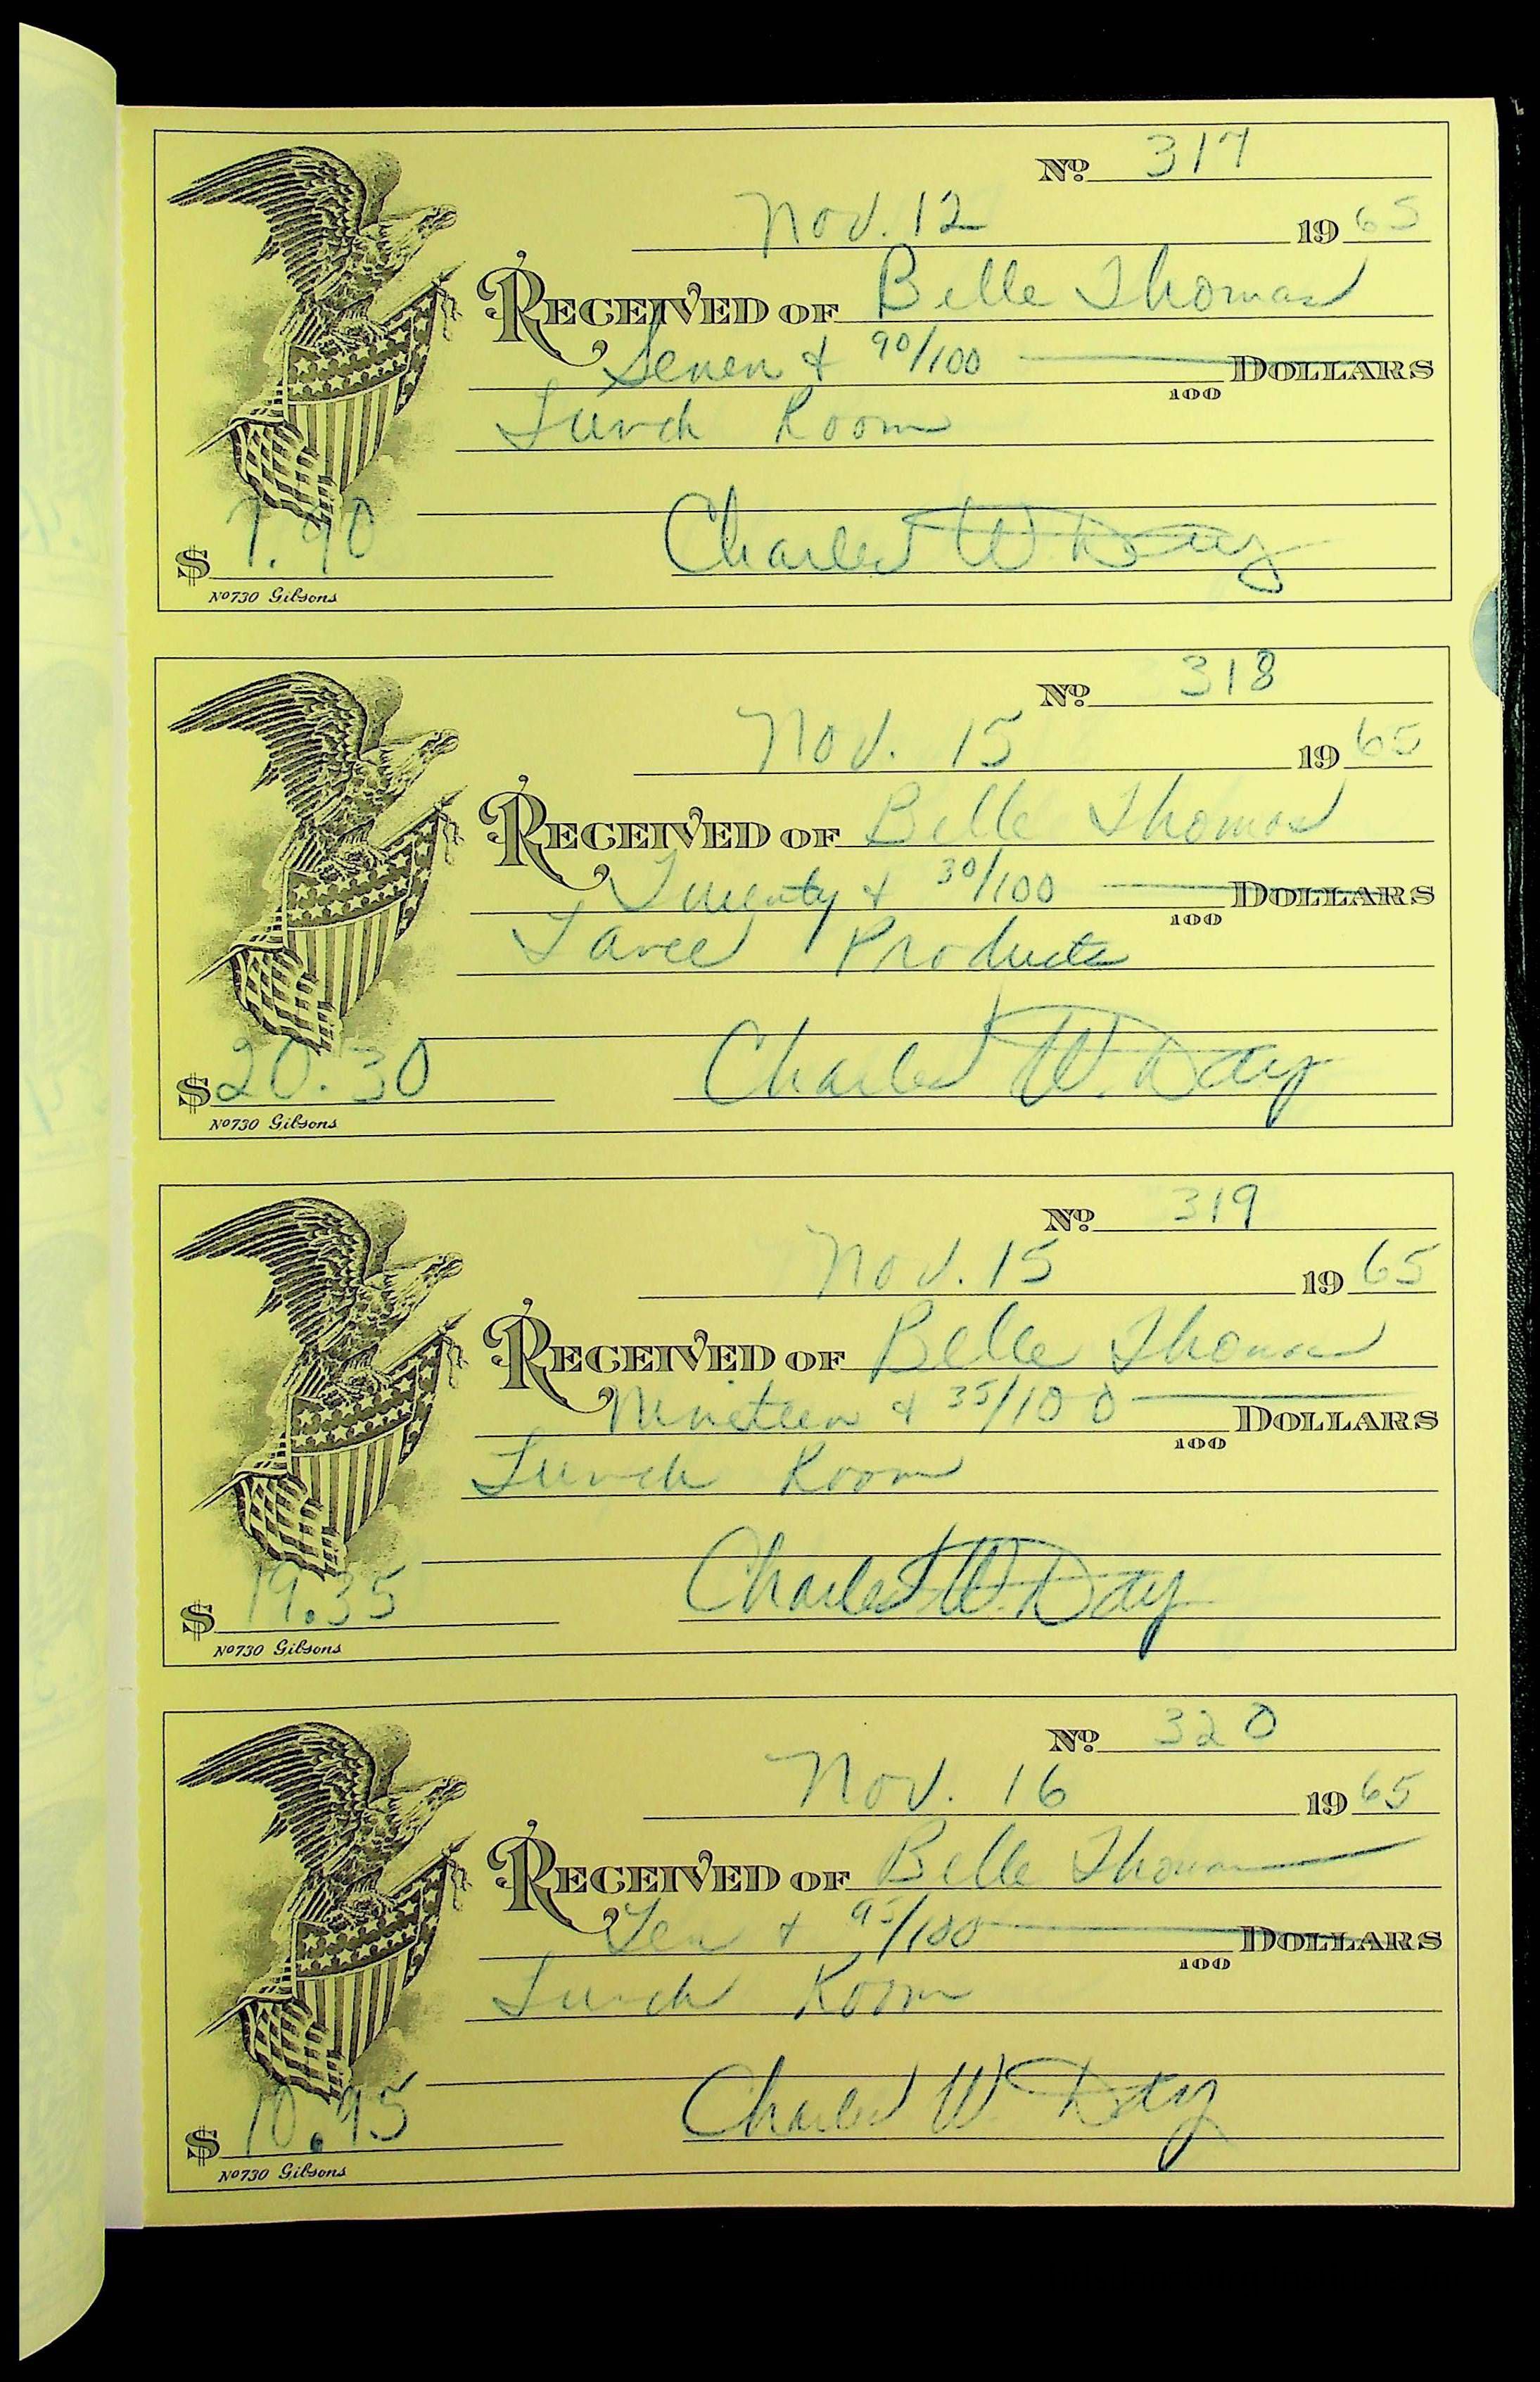 Nº 317
Nov. 12 1965
RECEIVED OF Belle Thomas
Seven & 90/100 DOLLARS
100
Lunch Room
Charles W. Day
$ 7.90
Nº 730 Gibsons
Nº 318
Nov. 15 1965
RECEIVED OF Belle Thomas
Twenty & 30/100 DOLLARS
100
Products
Charles W. Day
$ 20.30
Nº 730 Gibsons
Nº 319
Nov. 15 1965
RECEIVED OF Belle Thomas
Nineteen & 35/100 DOLLARS
100
Lunch Room
Charles W. Day
$ 19.35
Nº 730 Gibsons
Nº 320
Nov. 16 1965
RECEIVED OF Belle Thomas
Ten & 95/100 DOLLARS
100
Lunch Room
Charles W. Day
$ 10.95
Nº 730 Gibsons